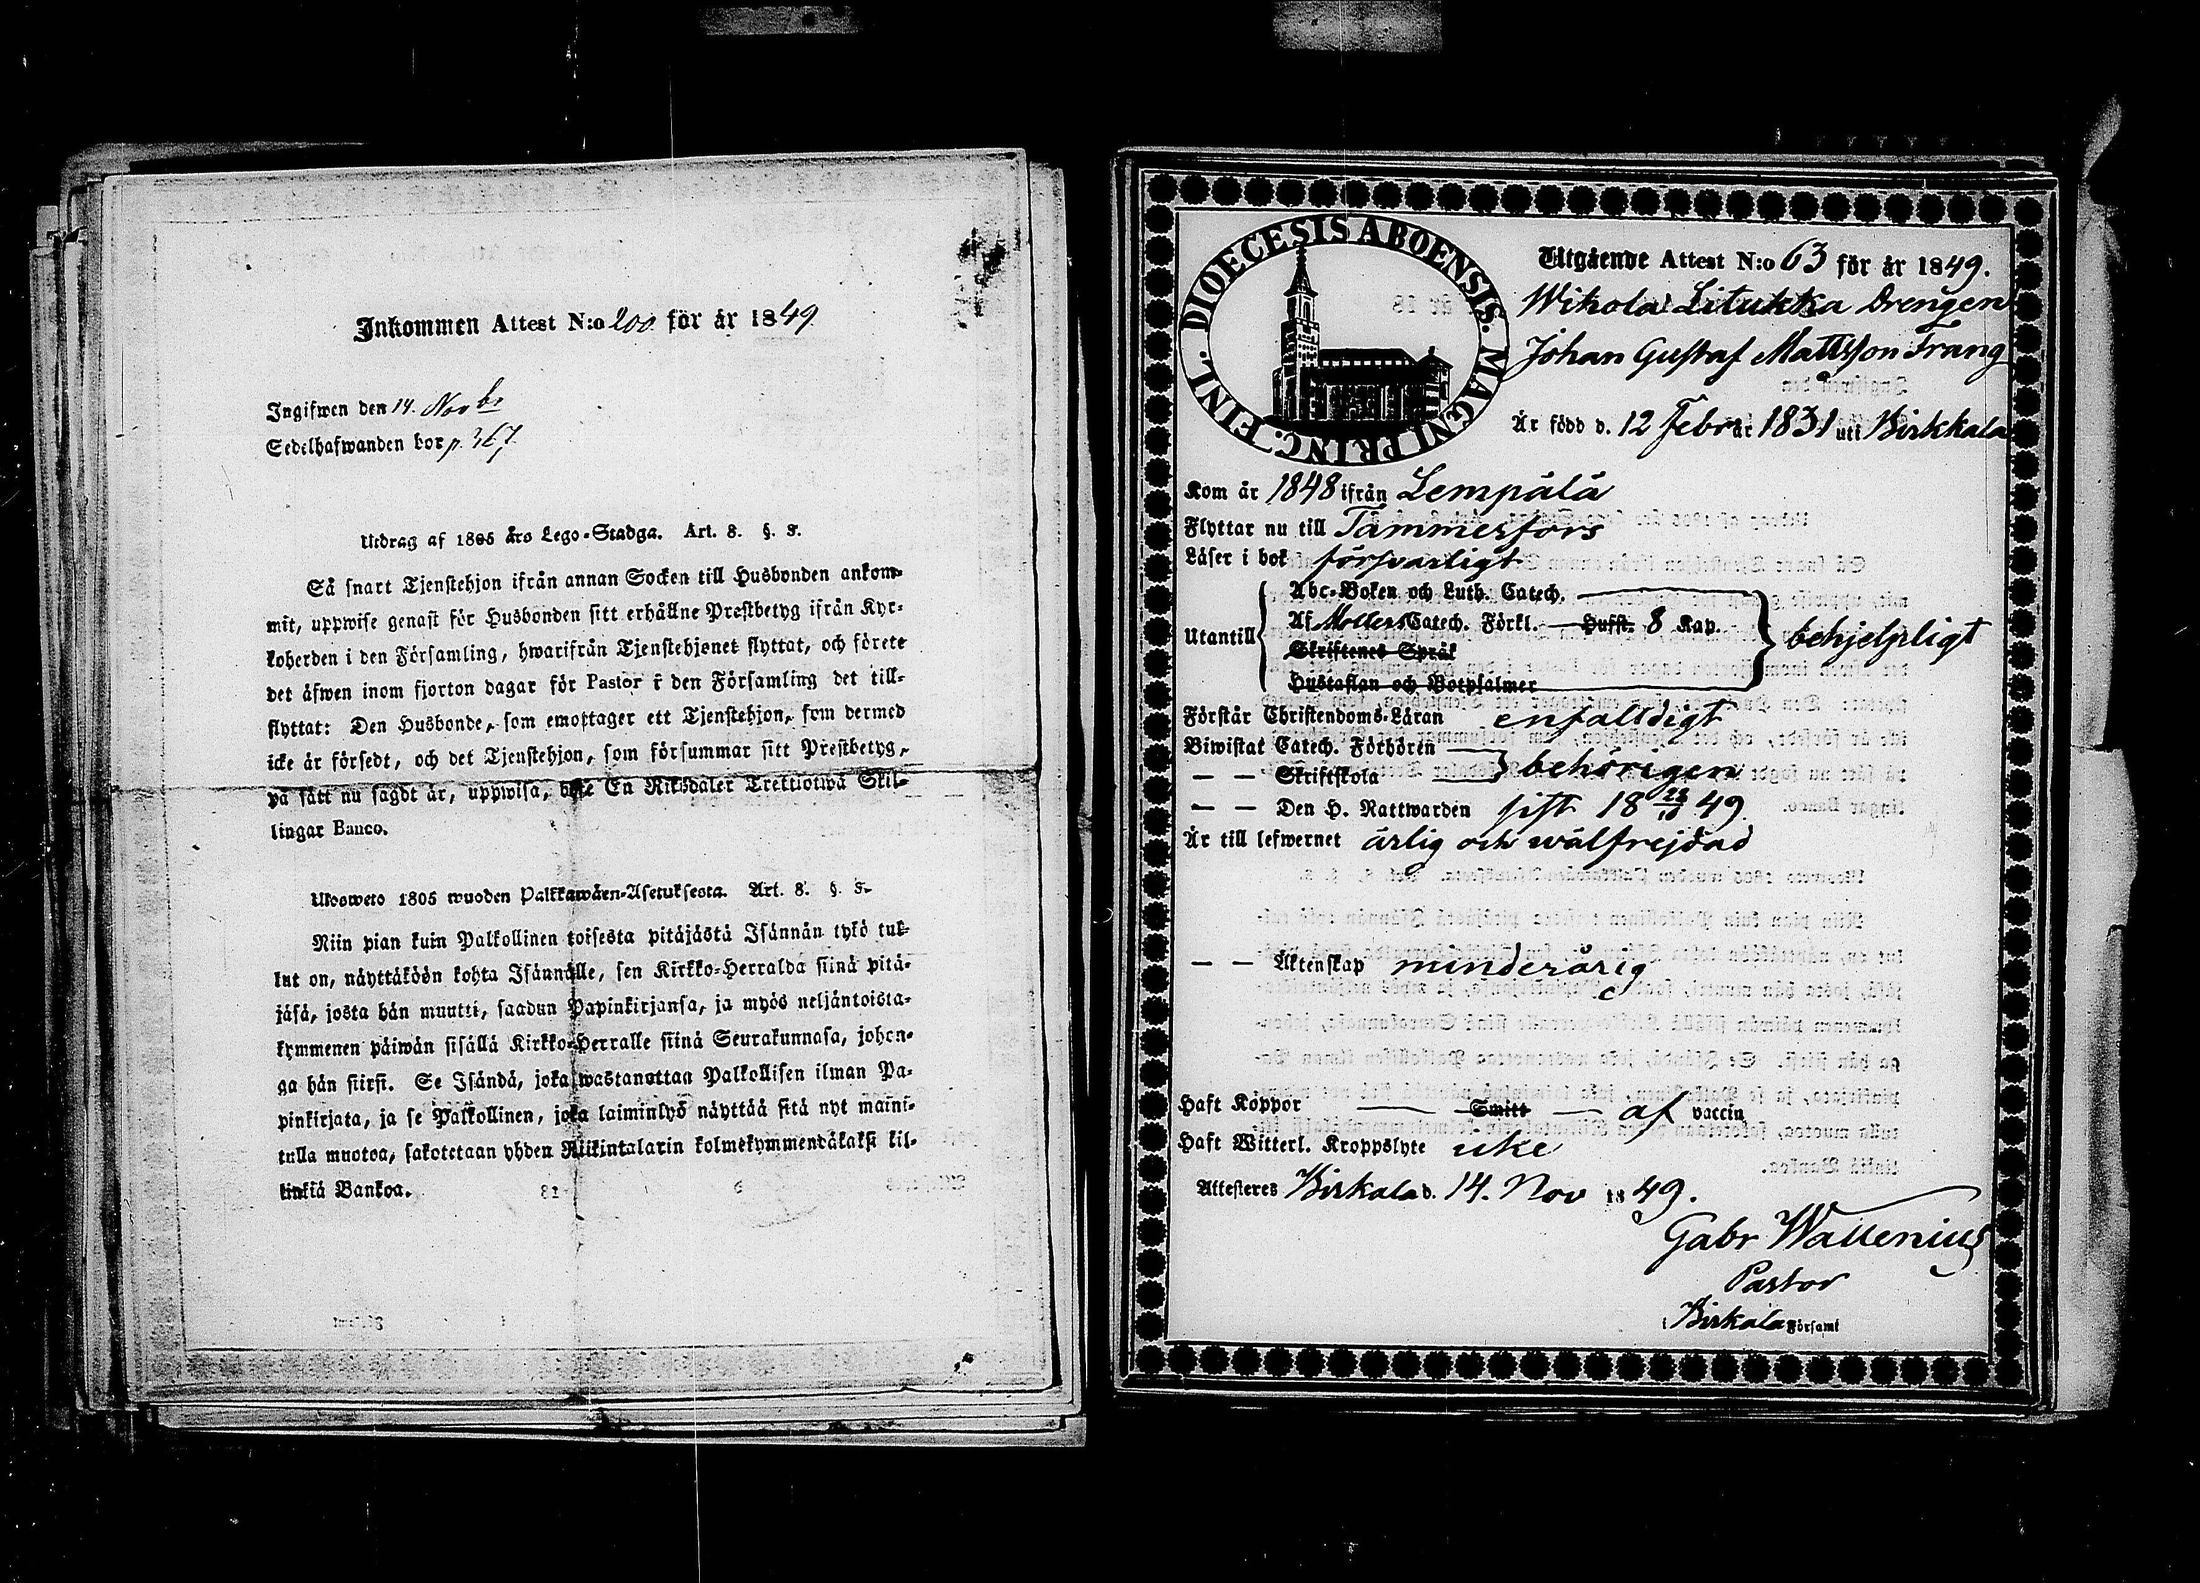 Inkommen Attest N:o 200 för år 1849
Ingifwen den 14. Novbr
Sedelhafwanden bor p. 367.
Utdrag af 1805 års Lego-Stadga. Art. 8. §. 3.
Så snart Tjenstehjon ifrån annan Socken till Husbonden ankom-
mit, uppwise genast för Husbonden sitt erhållne Prestbetyg ifrån Kyr-
koherden i den Församling, hwarifrån Tjenstehjonet flyttat, och förete
det äfwen inom fjorton dagar för Pastor i den Församling det till-
flyttat: Den Husbonde, som emottager ett Tjenstehjon, som dermed
icke är försedt, och det Tjenstehjon, som försummar sitt Prestbetyg,
på sätt nu sagdt är, uppwisa, böte En Riksdaler Trettiotwå Skil-
lingar Banco.
Ulosweto 1805 wuoden Palkkawäen-Asetuksesta. Art. 8. §. 3.
Niin pian kuin Palkollinen toisesta pitäjästä Isännän tykö tul-
lut on, näyttäköön kohta Isännälle, sen Kirkko-Herralda siinä pitä-
jäsä, josta hän muutti, saadun Papinkirjansa, ja myös neljäntoista-
kymmenen päiwän sisällä Kirkko-Herralle siinä Seurakunnasa, johon-
ga hän siirsi. Se Isändä, joka wastanottaa Palkollisen ilman Pa-
pinkirjata, ja se Palkollinen, joka laiminlyö näyttää sitä nyt maini-
tulla muotoa, sakotetaan yhden Riikintalarin kolmekymmendäkaksi kil-
linkiä Bankoa.
DIOECESIS ABOENSIS. MAGNI PRINC. FINL.
Utgående Attest N:o 63 för år 1849.
Wikola Litukka Drengen
Johan Gustaf Mattsson Frang
Är född d. 12 Febr år 1831 uti Birkkala
Kom år 1848 ifrån Lempälä
Flyttar nu till Tammerfors
Läser i bok försvarligt
Utantill
Abc-Boken och Luth. Catech.
Af Mollers Catech. Förkl. — Hufst. 8 Kap.
Skriftenes Språk
Hustaflan och Botpsalmer
behjelpligt
Förstår Christendoms-Läran enfalldigt
Biwistat Catech. Förhören
— — Skriftskola
behörigen
— — Den H. Nattwarden sist 18 28/10 49
Är till lefwernet ärlig och wälfrejdad
— — Äktenskap minderårig
Haft Koppor — Smitt — af vaccin
Haft Witterl. Kroppslyte icke
Attesteres Birkala d. 14. Nov 1849.
Gabr Wallenius
Pastor
i Birkala Församl